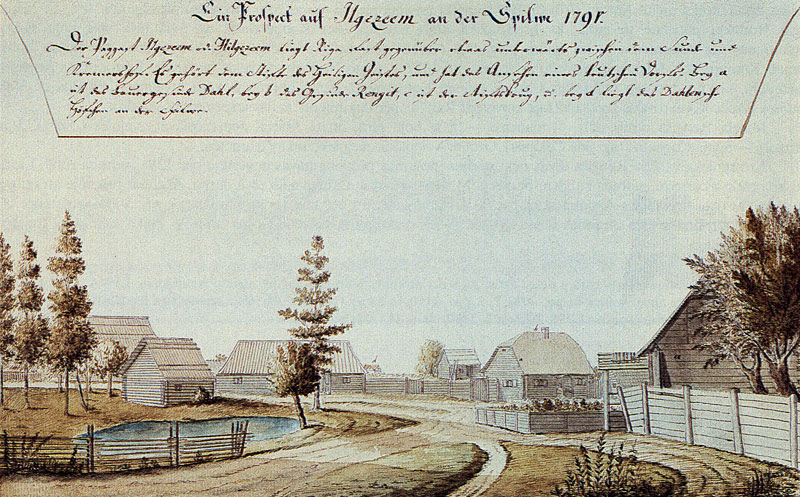 Ein Prospect auf Ilgezeem an der Spilwe 1791.
Der Paggast Ilgezeem od. Hilgezeem liegt Riga fast gegenüber etwas unterwärts zwischen dem Sunde und
Kremershofe. Er gehört dem Stifte des Heiligen Geistes, und hat das Ansehen eines teutschen Dorfs. Bey a
ist das Bauergesinde Dahl, bey b das Gesinde Rengit, c ist der Stiftskrug, u. bey d liegt das Dahlensch
Höfchen an der Spilwe.